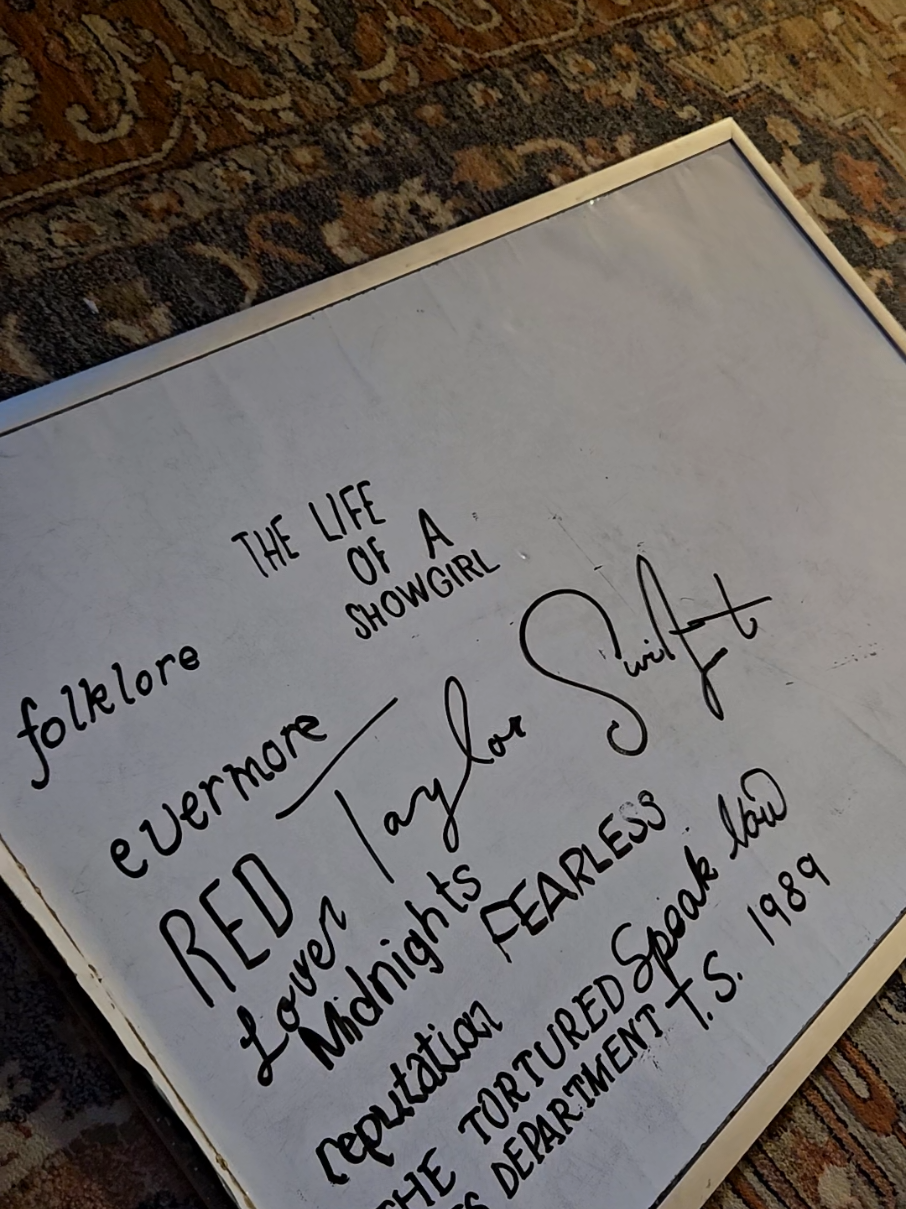 THE LIFE
OF A
SHOWGIRL
folklore
evermore
Taylor Swift
RED
Lover
Midnights
FEARLESS
Speak Now
reputation
THE TORTURED
DEPARTMENT
T.S. 1989